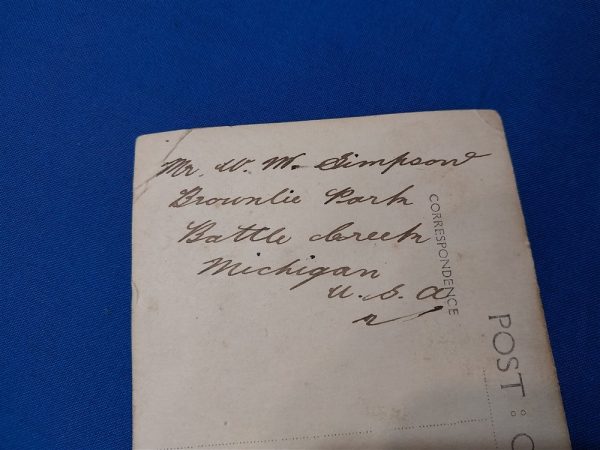 Mr. W. M. Simpson
Brownlie Park
Battle Creek
Michigan
U. S. A
CORRESPONDENCE
POST : C